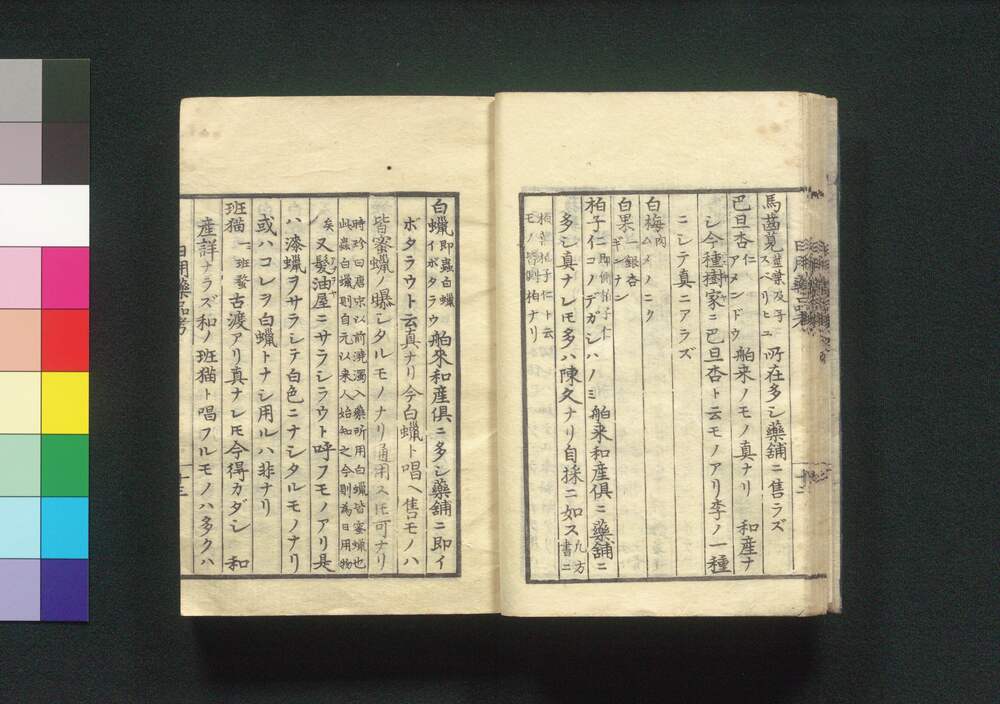 馬齒莧 莖葉及子 スベリヒユ 所在多シ藥舖ニ售ラズ
巴旦杏 仁 アメンドウ 舶来ノモノ真ナリ 和産ナ
シ今種樹家ニ巴旦杏ト云モノアリ李ノ一種
ニシテ真ニアラズ
白梅 肉 ムメノニク
白果 一銀杏 ギンナン
柏子仁 即側柏子仁 コノデガシハノミ 舶来和産俱ニ藥舖ニ
多シ真ナレ𪜈多ハ陳久ナリ自採ニ如ス 九方書ニ
柏子仁ト云
モノ皆則柏ナリ
日用藥品考
十二
白蠟 即蟲白蠟 イボタラウ 舶來和産俱ニ多シ藥舖ニ即イ
ボタラウト云真ナリ今白蠟ト唱ヘ售モノハ
皆蜜蠟ノ曝シタルモノナリ通用ス𪜈可ナリ
時珍曰唐宗以前澆濁入藥所用白蠟皆蜜蠟也
此蟲白蠟則自元以来人始知之今則為日用物
矣 又髮油屋ニサラシラウト呼フモノアリ是
ハ漆蠟ヲサラシテ白色ニナシタルモノナリ
或ハコレヲ白蠟トナシ用ルハ非ナリ
班猫 一班蝥 古渡アリ真ナレ𪜈今得カダシ 和
産詳ナラズ和ノ班猫ト唱フルモノハ多クハ
日用藥品考
十三